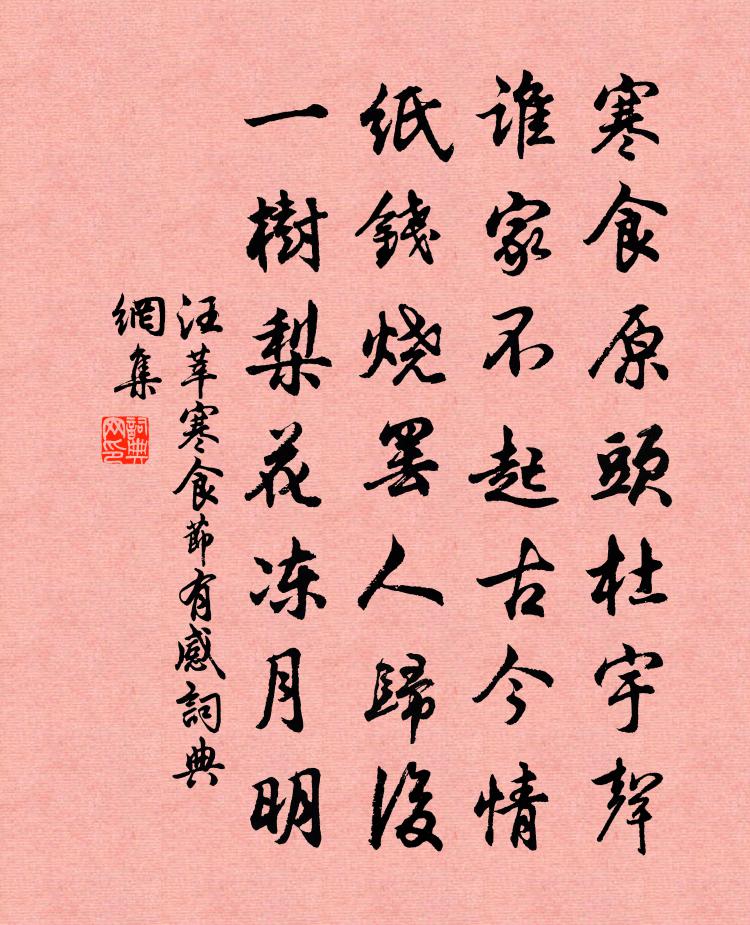 寒食原頭杜宇聲
誰家不起古今情
紙錢燒罢人歸後
一樹梨花冻月明
汪莘寒食節有感詞典
網集
詞典
网印